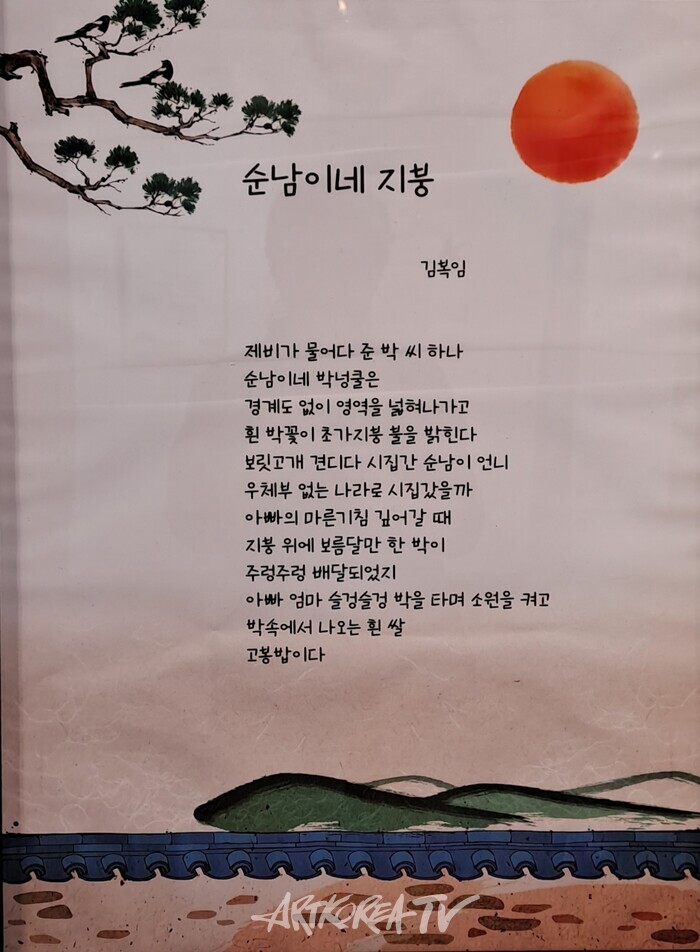 순남이네 지붕
김복임
제비가 물어다 준 박 씨 하나
순남이네 박넝쿨은
경계도 없이 영역을 넓혀나가고
흰 박꽃이 초가지붕 불을 밝힌다
보릿고개 견디다 시집간 순남이 언니
우체부 없는 나라로 시집갔을까
아빠의 마른기침 깊어갈 때
지붕 위에 보름달만 한 박이
주렁주렁 배달되었지
아빠 엄마 슬겅슬겅 박을 타며 소원을 켜고
박속에서 나오는 흰 쌀
고봉밥이다
ARTKOREATV